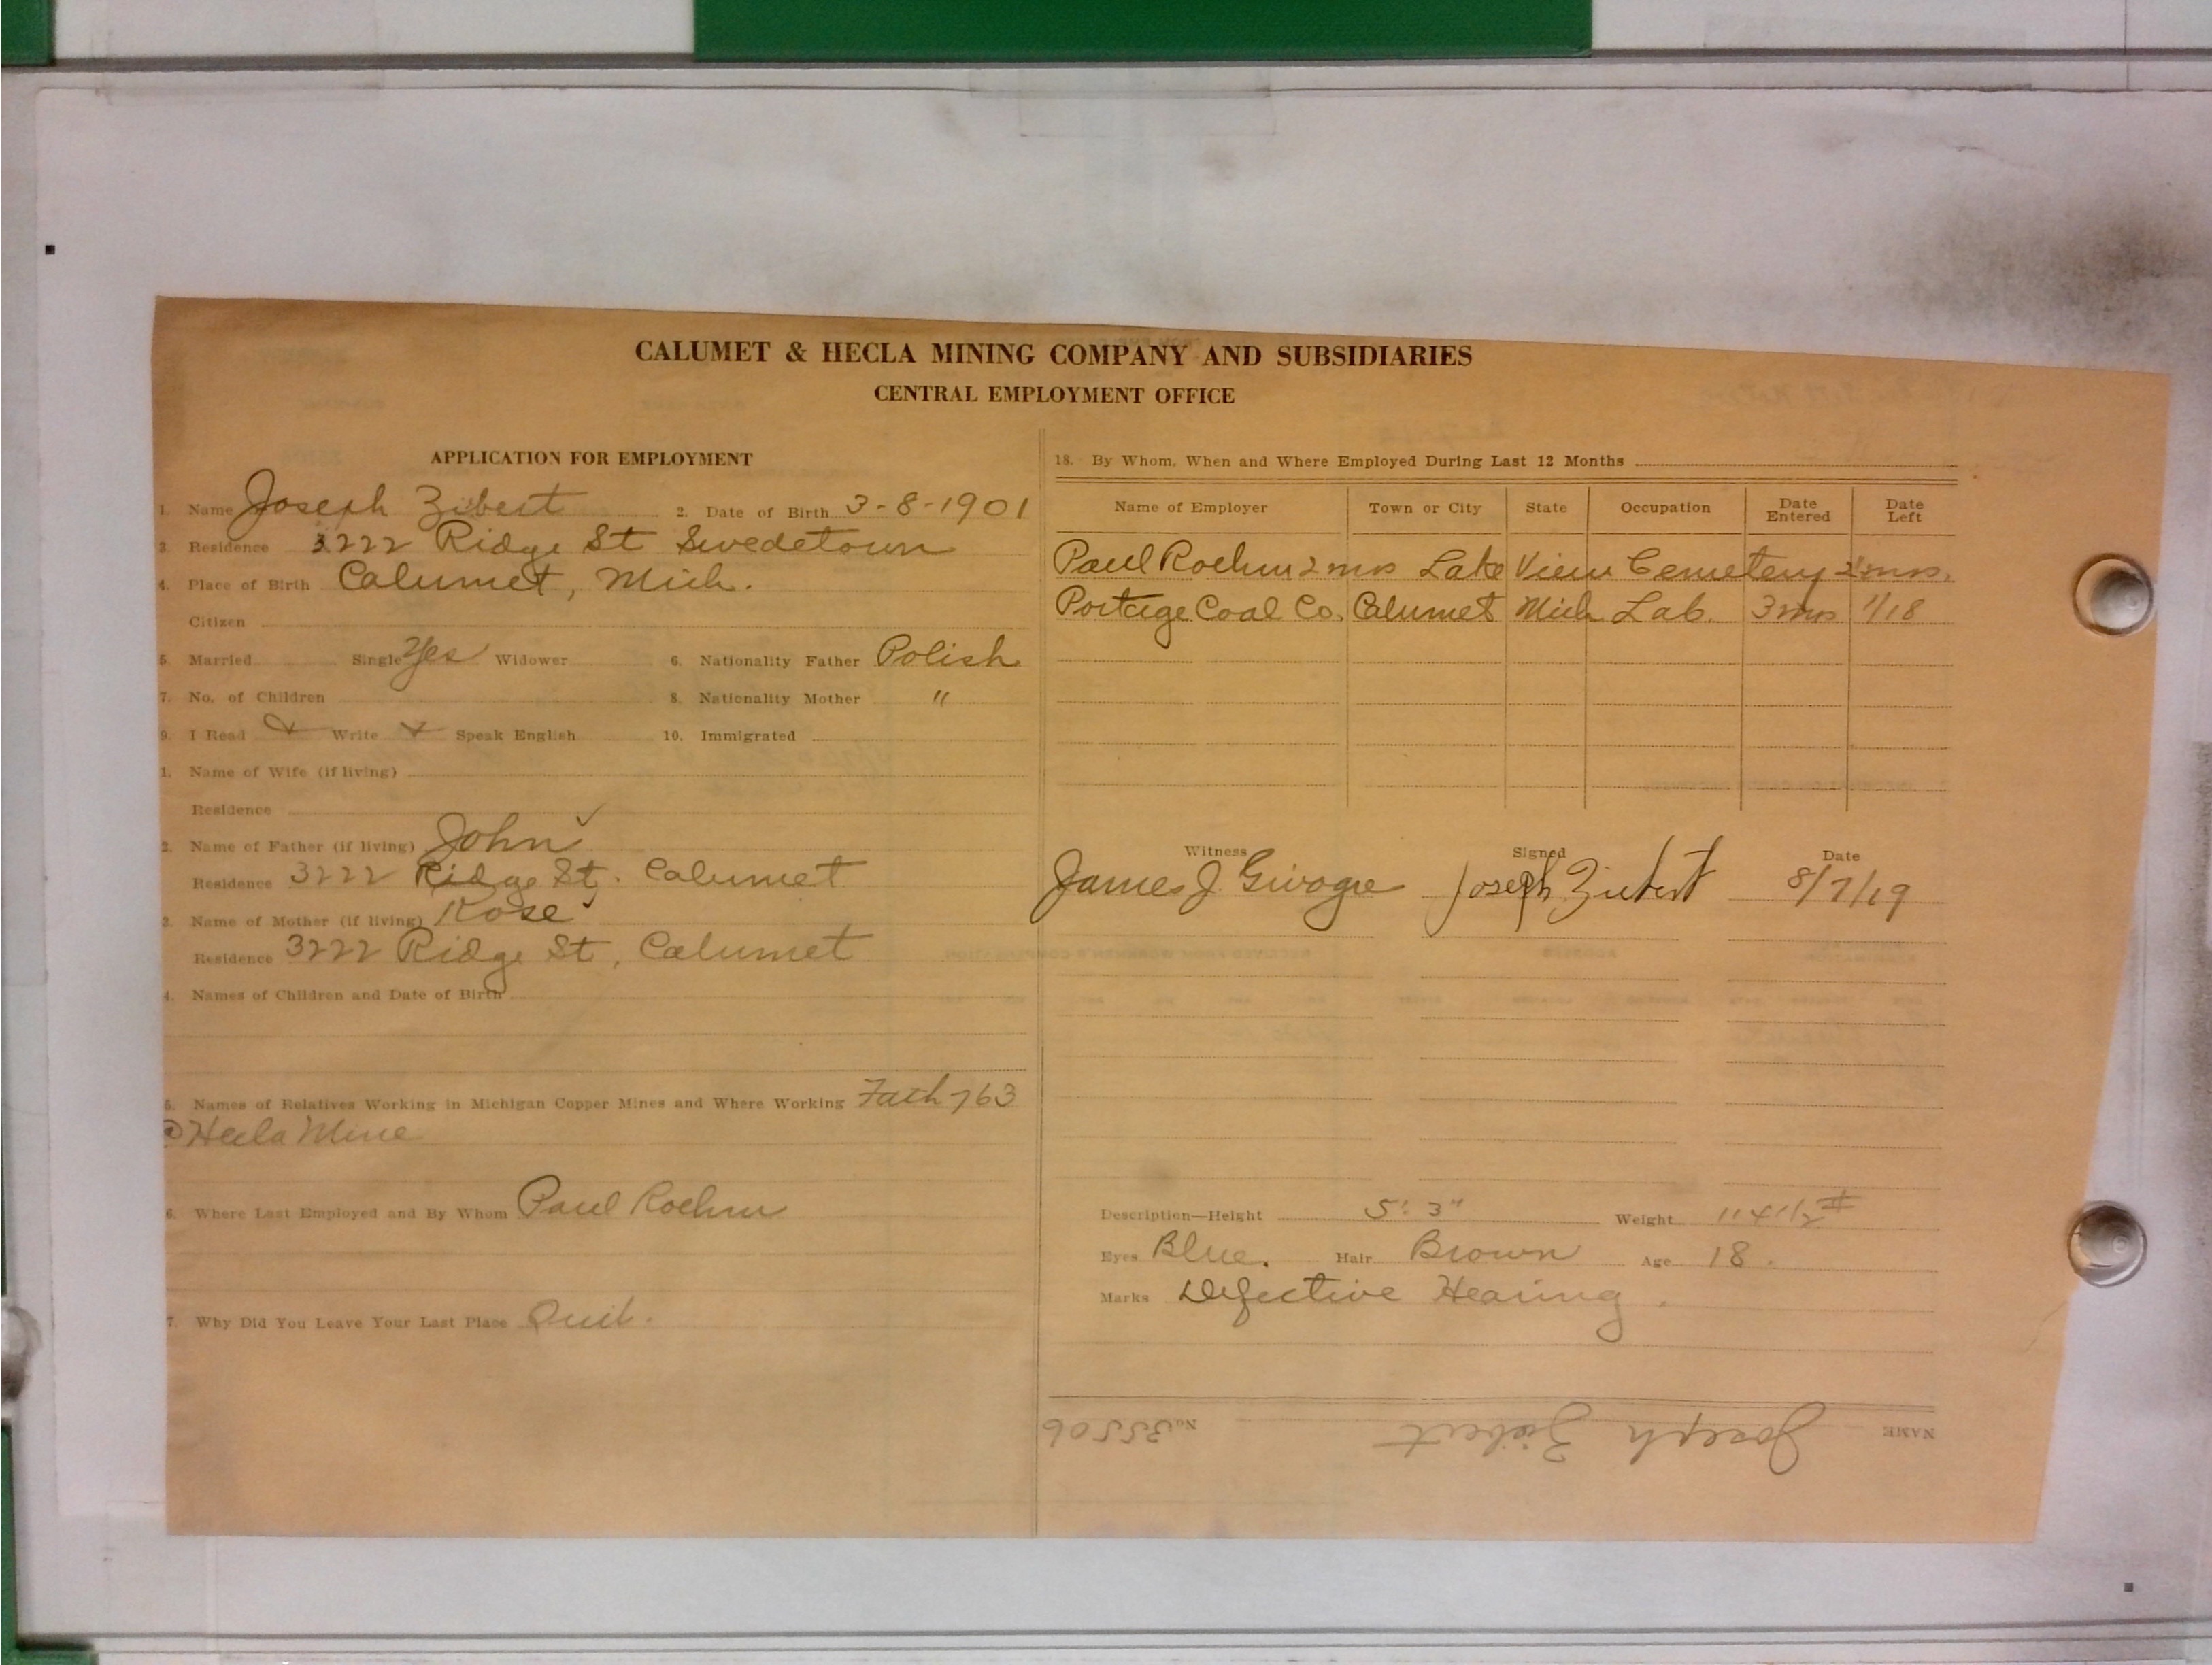 CALUMET & HECLA MINING COMPANY AND SUBSIDIARIES
CENTRAL EMPLOYMENT OFFICE
APPLICATION FOR EMPLOYMENT
1. Name Joseph Zibert 2. Date of Birth 3-8-1901
3. Residence 3222 Ridge St Swedetown
4. Place of Birth Calumet, Mich.
Citizen
5. Married Single Yes Widower 6. Nationality Father Polish
7. No. of Children 8. Nationality Mother "
9. I Read Write Speak English 10. Immigrated
1. Name of Wife (if living)
Residence
2. Name of Father (if living) John
Residence 3222 Ridge St. Calumet
3. Name of Mother (if living) Rose
Residence 3222 Ridge St, Calumet
4. Names of Children and Date of Birth
5. Names of Relatives Working in Michigan Copper Mines and Where Working Fath 763
@ Hecla Mine
6. Where Last Employed and By Whom Paul Roehm
7. Why Did You Leave Your Last Place Quit.
18. By Whom, When and Where Employed During Last 12 Months
Name of Employer Town or City State Occupation Date Entered Date Left
Paul Roehm 2 mos Lake View Cemetery 2 mos.
Portage Coal Co. Calumet Mich Lab. 3 mos 1/18
Witness Signed Date
James J. Joseph Ziebert 8/7/19
Description—Height 5' 3" Weight 114 1/2 #
Eyes Blue. Hair Brown Age 18.
Marks Defective Hearing.
NAME Joseph Ziebert No. 35506